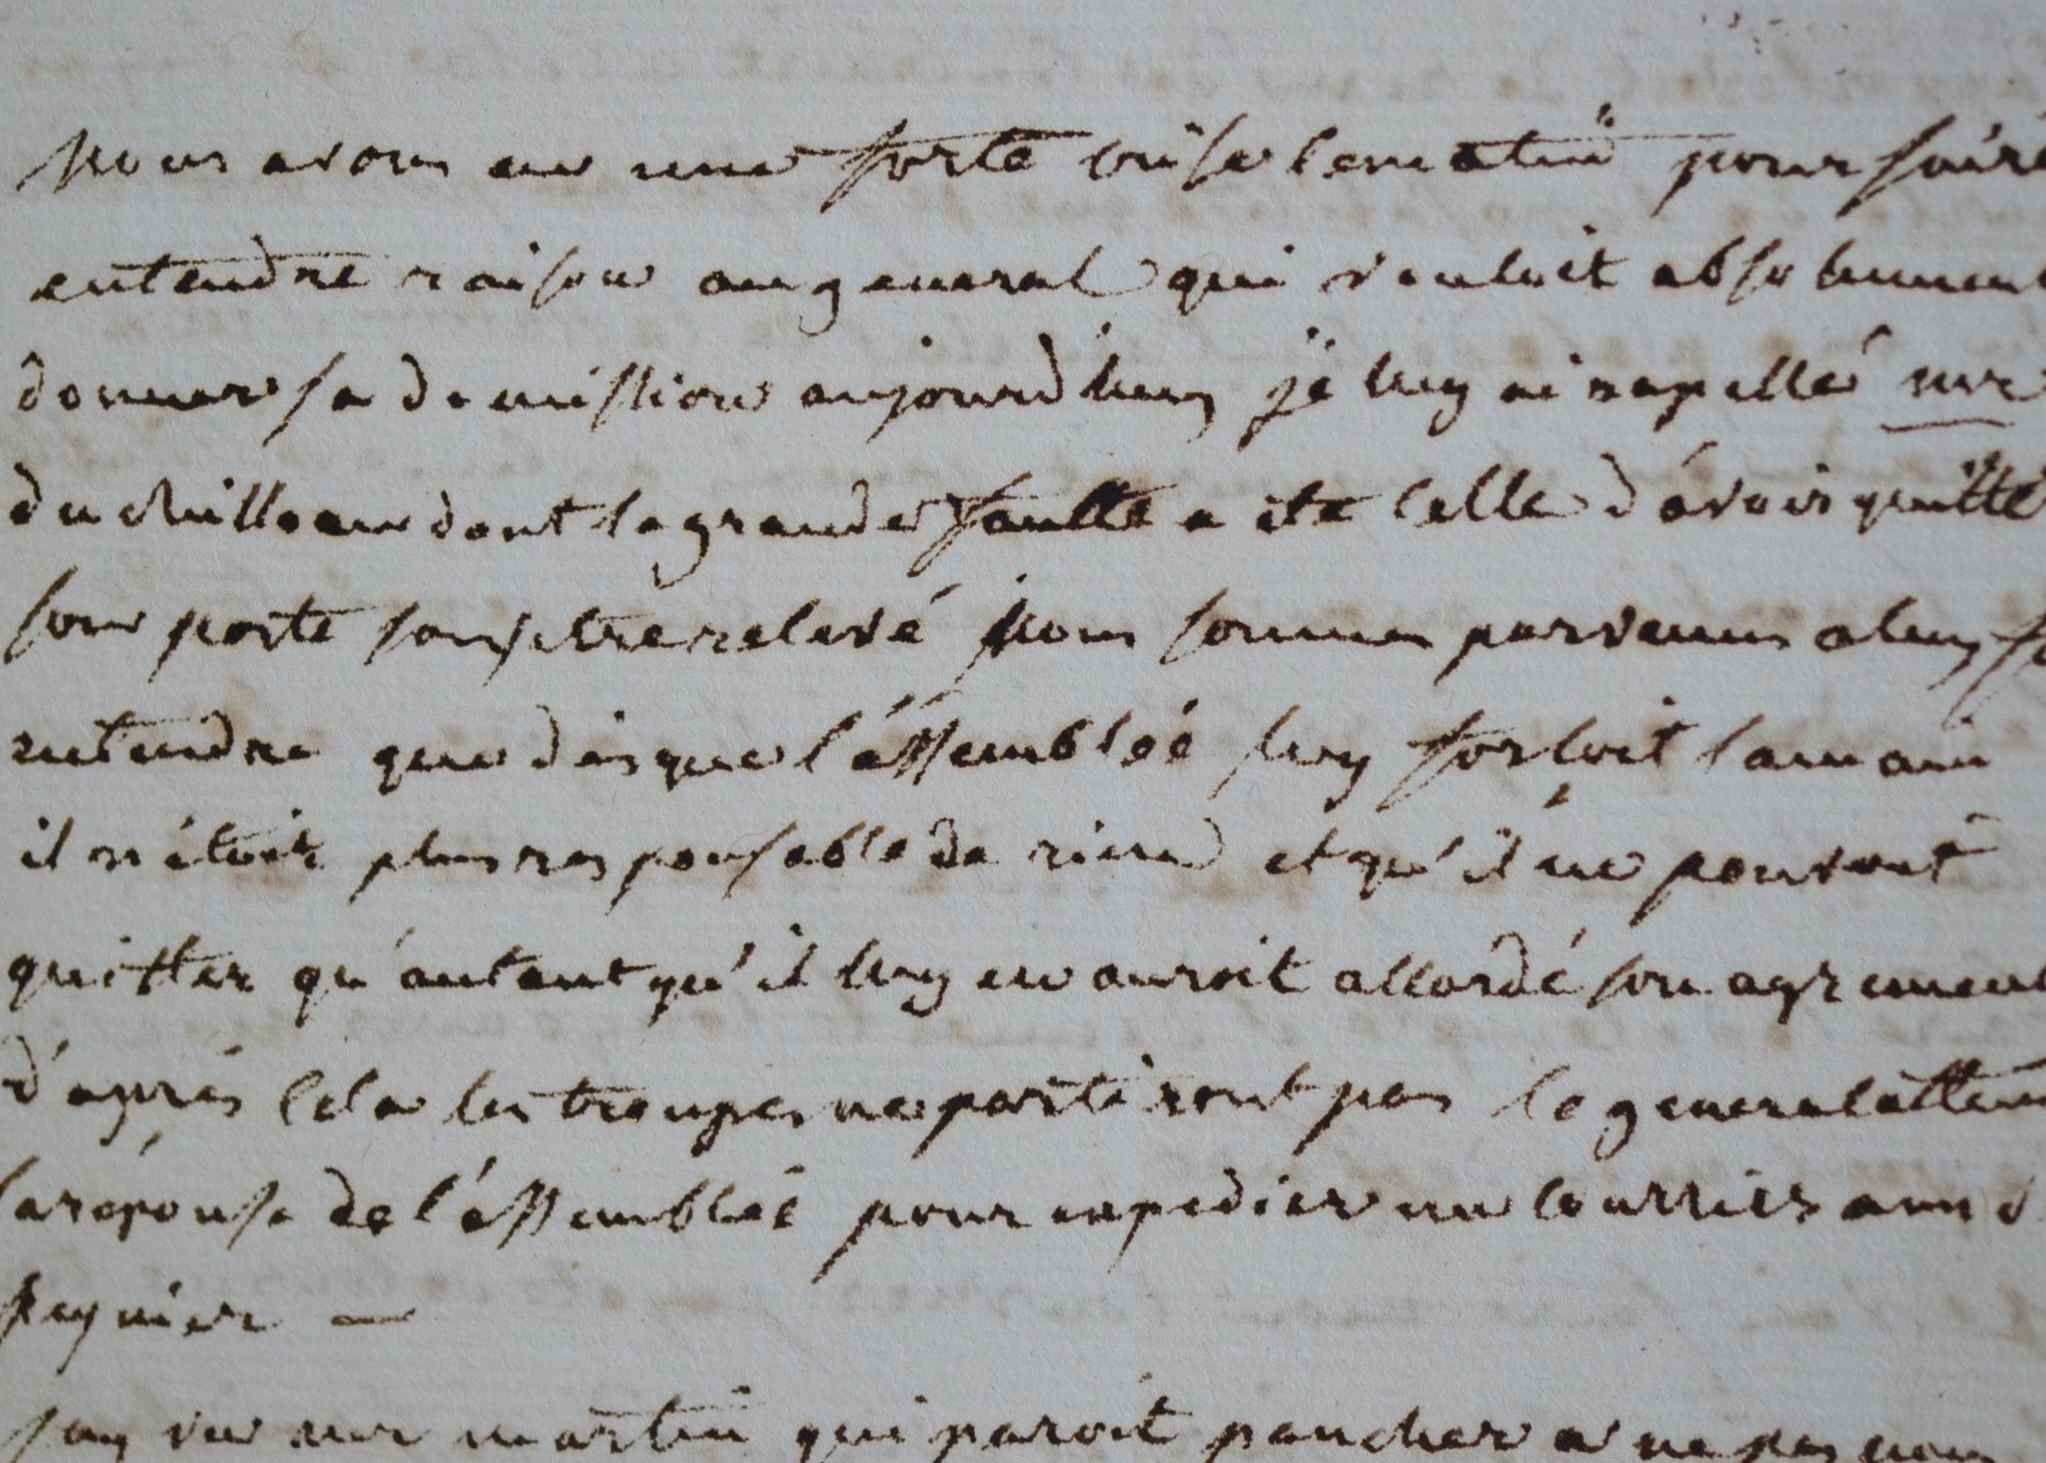 Nous avons eu une forte crise le matin pour faire
entendre raison au general qui vouloit absolument
donner sa demission aujourd'huy je luy ai rapellé mr
du chilleau dont la grande faulte a ete celle d'avoir quitté
son poste sans etre relevé Nous sommes parvenus a luy
entendre que des que l'assemblée luy forçoit la main
il n'étoit plus responsable de rien et qu'il ne pouvoit
quitter qu'autant qu'il luy en auroit accordé son agrement
d'aprés cela les troupes ne partiront pas le general attend
la réponse de l'assemblée pour expedier un courrier a mr
Peynier —
J'ay vu mr martin qui paroit pancher a ne pas nous